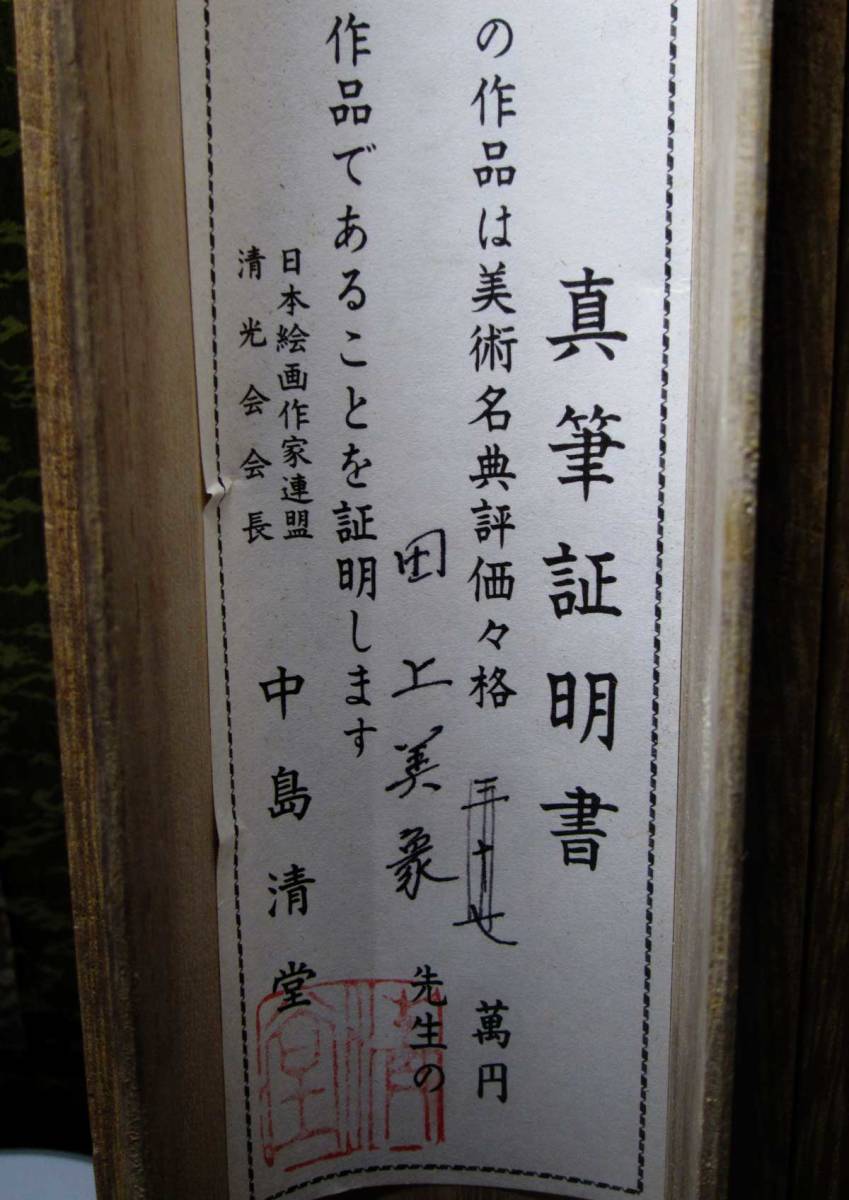 真筆証明書
の作品は美術名典評価々格 三十七 萬円
田上美象 先生の
作品であることを証明します
日本絵画作家連盟
清光会会長
中島清堂
清堂